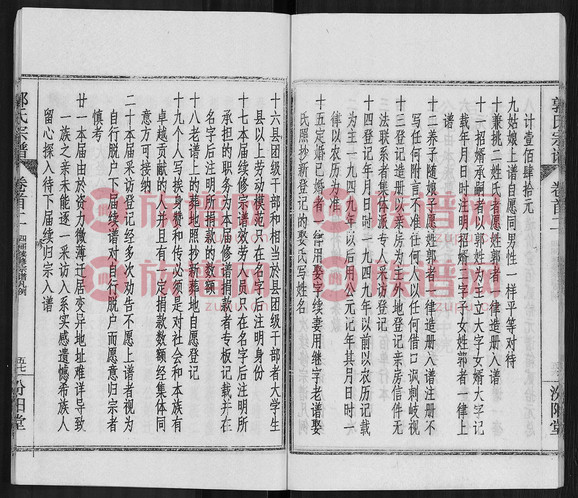 郭氏宗谱
卷首二
汾阳堂
计壹佰肆拾元
九姑娘上谱自愿同男性一样平等对待
十兼挑二姓氏者愿姓郭者一律造册入谱
十一招婿承嗣者以郭姓为主上大字女婿大字记
谱
十二养子随娘子愿姓郭者一律造册入谱注册不
写任何附言不准任何人以任何借口讽刺岐视
十三登记造册以亲房为主外地登记亲房信件无
法联系者集体派专人采访登记
十四登记人时间一九四九年以前以农历记载
为主一九四九年以后用公元记年其月日时一
律以农历为准
十五定婚已婚者一
氏照抄新登记的娶氏写姓名
十六县团级干部和相当於县团级干部者大学生
县以上劳动模范只在名字后注明身份
十七本届续修宗谱效劳人员只在名字后注明所
承担的职务为本届修谱捐款者专板记载并在
名字后注明所捐款的数额
十八老谱上的葬地照抄新葬地自愿登记
十九个人写挨身赞和传必须是对社会和本族有
卓越贡献的人并且有一定捐款数额经集体同
意方可接纳
二十本届采访登记经多次劝告不愿上谱者视为
自行脱户下届续谱对自行脱户而愿意归宗者
慎考
廿一本届由於资力微薄迁居变异地址难详导致
一族之亲未能逐一采访入系实感遗憾希族人
留心探入待下届续归宗入谱
郭氏宗谱
卷首二
四届续修宗谱凡例
五七
汾阳堂
族谱网
zupu.cn